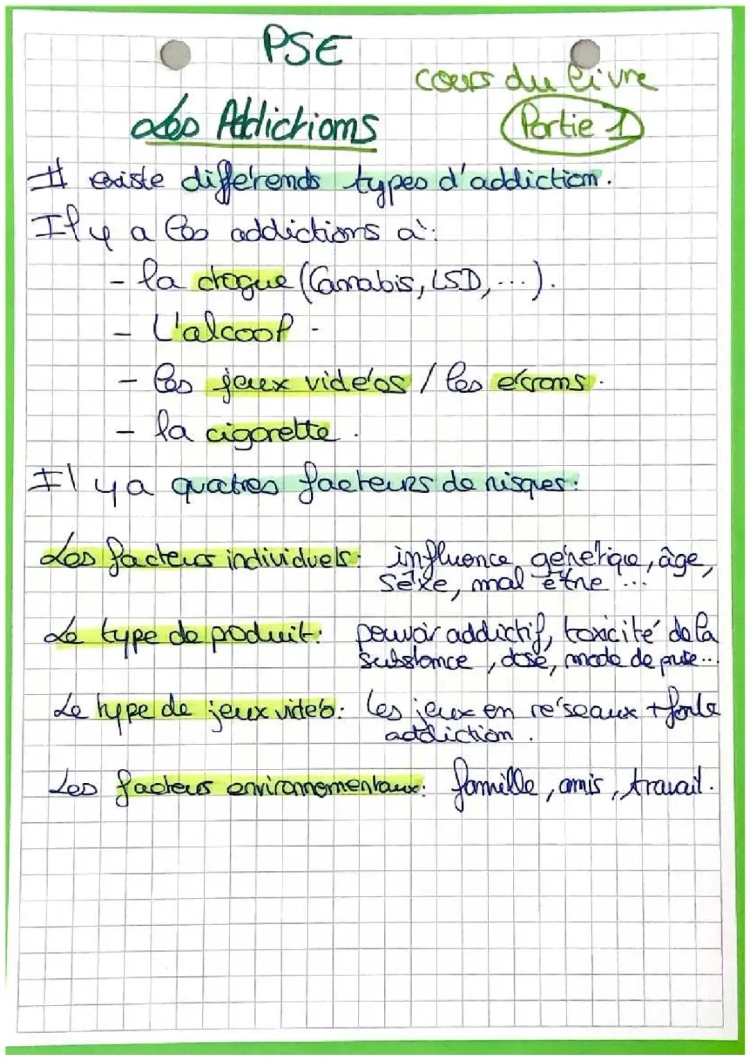 PSE
cours du livre
Les Addictions
Partie 1
Il existe différends types d'addiction.
Il y a les addictions à:
- la drogue (Canabis, LSD, ...).
- L'alcool -
- les jeux vidéos / les écrans.
- la cigarette.
Il y a quatres facteurs de risques:
Les facteurs individuels: influence génétique, âge,
sexe, mal être ...
Le type de poduit: pouvoir addictif, toxicité de la
substance, dose, mode de prise...
Le type de jeux vidéo: les jeux en réseaux + forte
addiction.
Les facteurs environnementaux: famille, amis, travail.